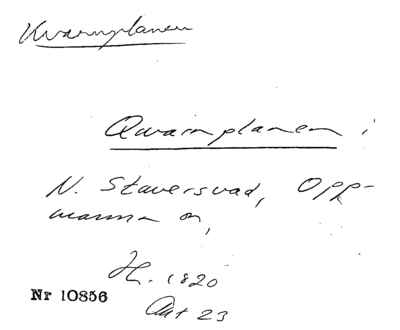 Kvarnplanen
Qvarnplanen i
N. Staversvad, Opp-
manna sn,
H. 1820
Akt 23
Nr 10856